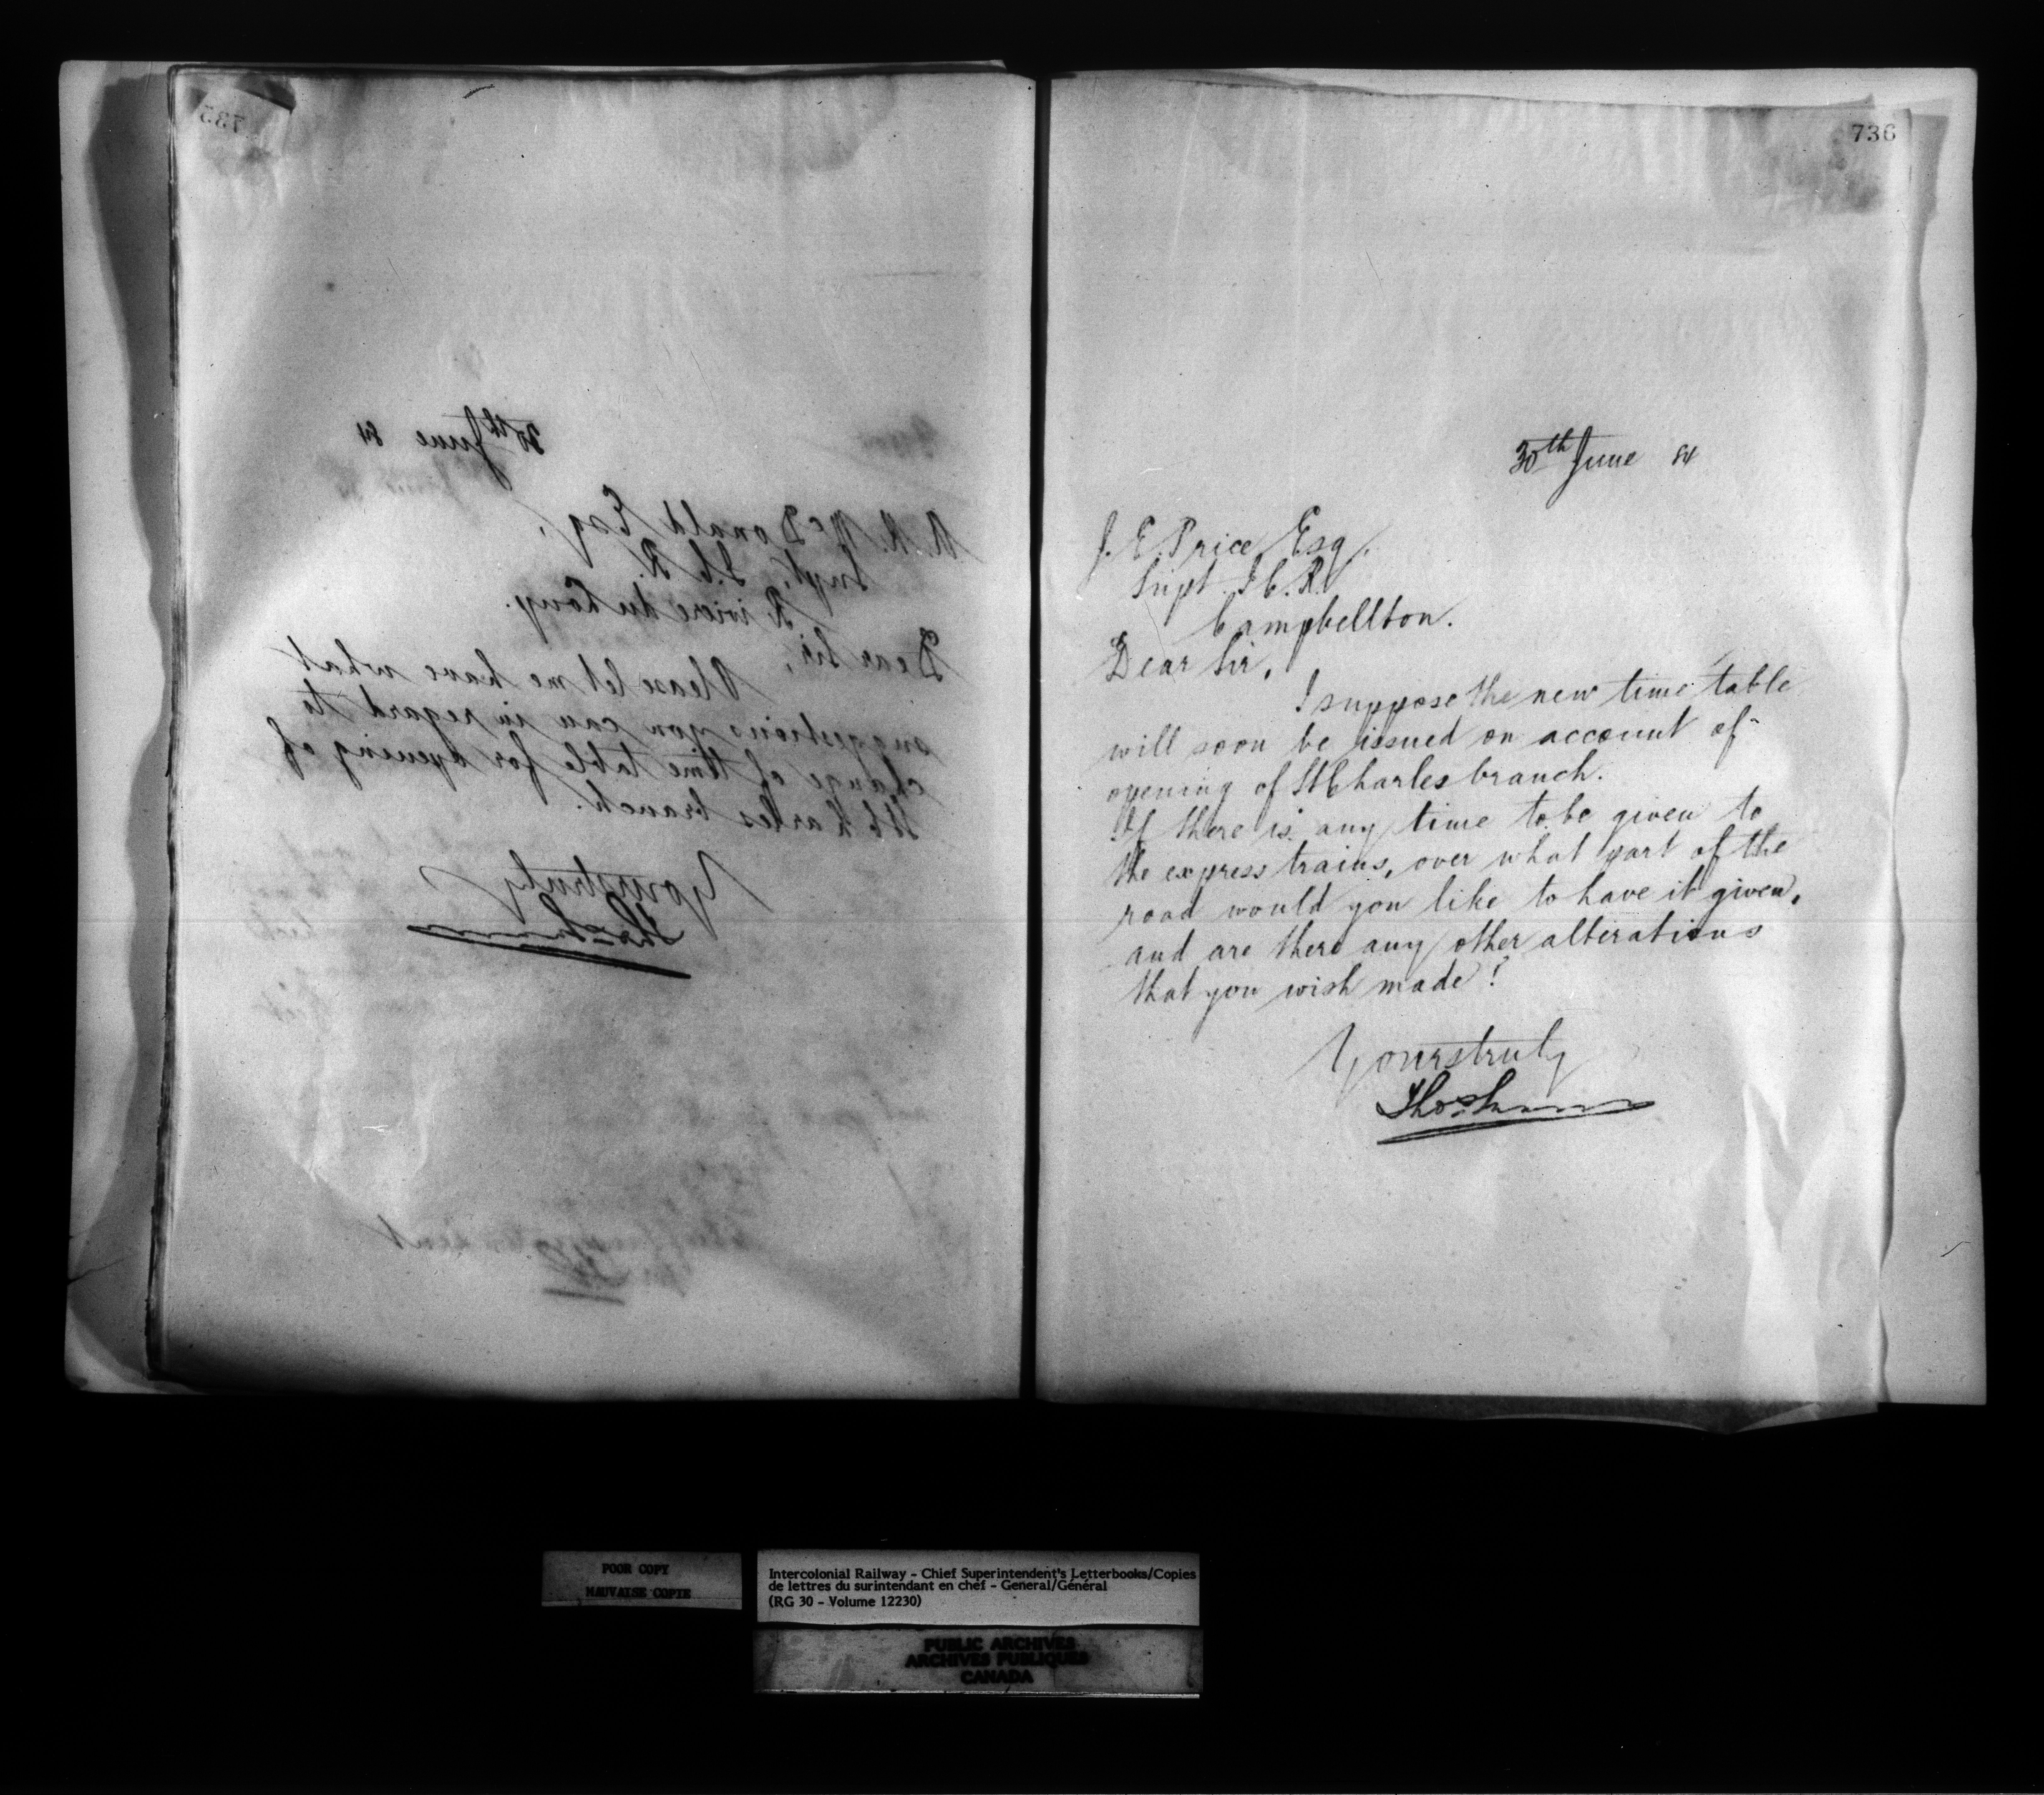 735
30th June 84
A. R. McDonald Esq,
Supt, I. C. R.
Riviere du Loup.
Dear Sir,
Please let me have what
suggestions you can in regard to
change of time table for opening of
St Charles branch.
Yours truly
736
30th June 84
J. E. Price Esq,
Supt. I. C. R.
Campbellton.
Dear Sir,
I suppose the new time table
will soon be issued on account of
opening of St Charles branch.
If there is any time to be given to
the express trains, over what part of the
road would you like to have it given,
and are there any other alterations
that you wish made?
Yours truly
POOR COPY
MAUVAISE COPIE
Intercolonial Railway - Chief Superintendent's Letterbooks/Copies
de lettres du surintendant en chef - General/Général
(RG 30 - Volume 12230)
PUBLIC ARCHIVES
ARCHIVES PUBLIQUES
CANADA